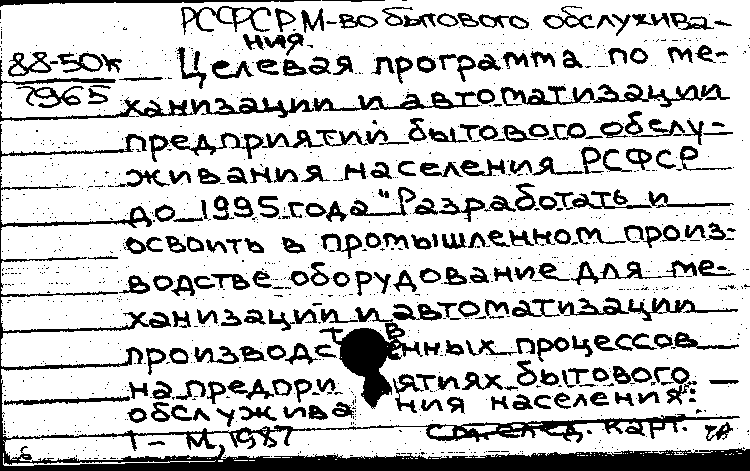 РСФСР М-во бытового обслужива-
ния.
88-50к
7965
Целевая программа по ме-
ханизации и автоматизации
предприятий бытового обслу-
живания населения РСФСР
до 1995 года "Разработать и
освоить в промышленном произ-
водстве оборудование для ме-
ханизации и автоматизации
производственных процессов
на предприятиях бытового
обслуживания населения":
1 - М, 1987
См. след. карт.